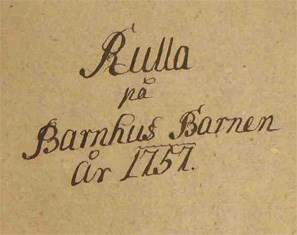 Rulla
på
Barnhus Barnen
År 1757.